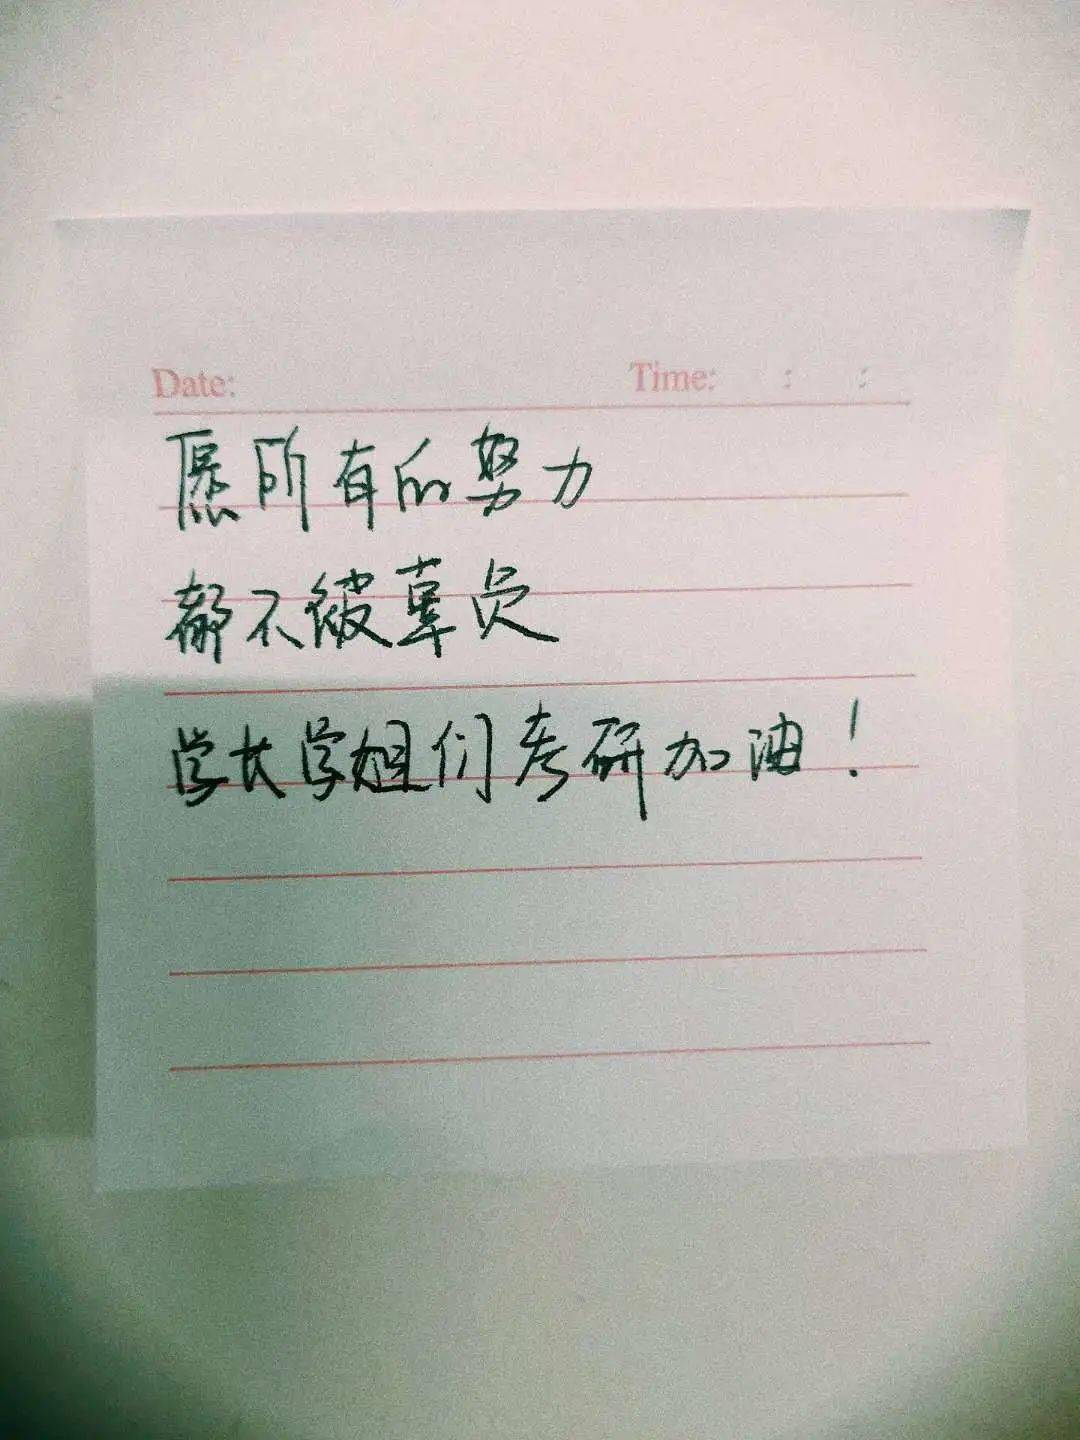 Date: Time: : :
愿所有的努力
都不被辜负
学长学姐们考研加油！